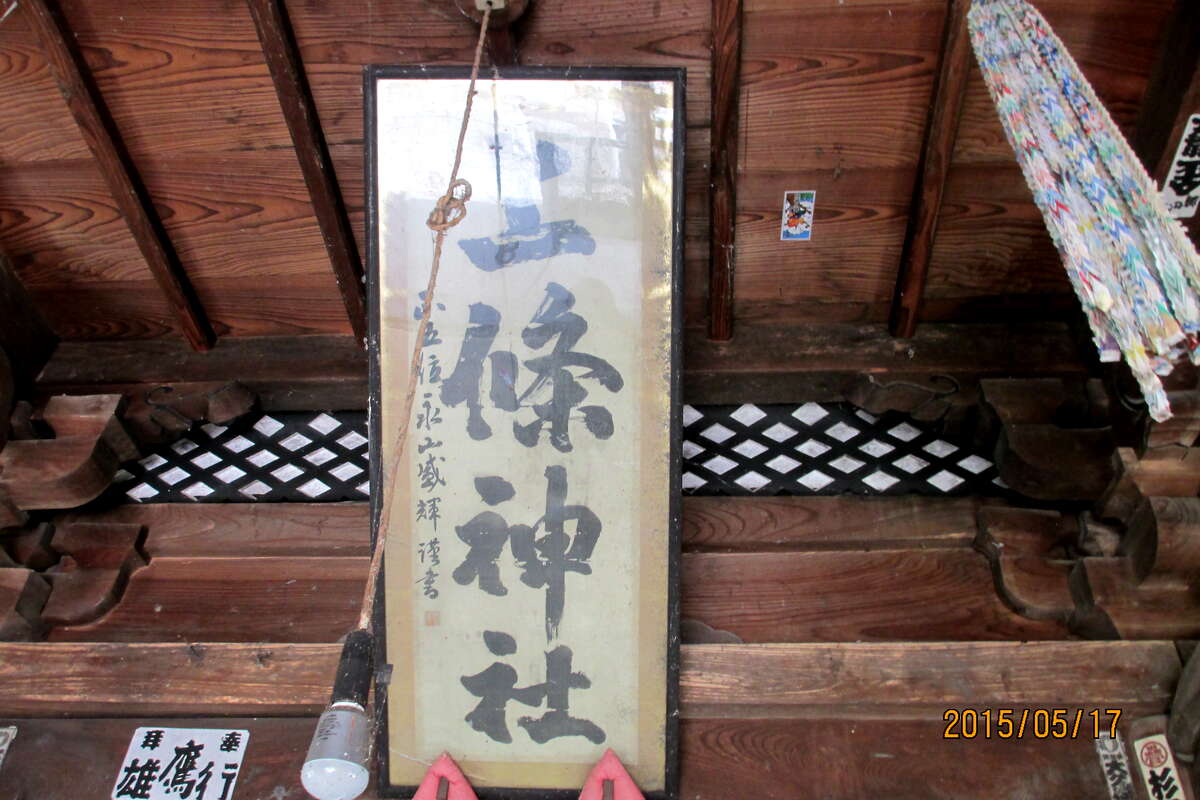 上條神社
正五位永山盛輝謹書
奉拝
行鷹雄
杉
2015/05/17